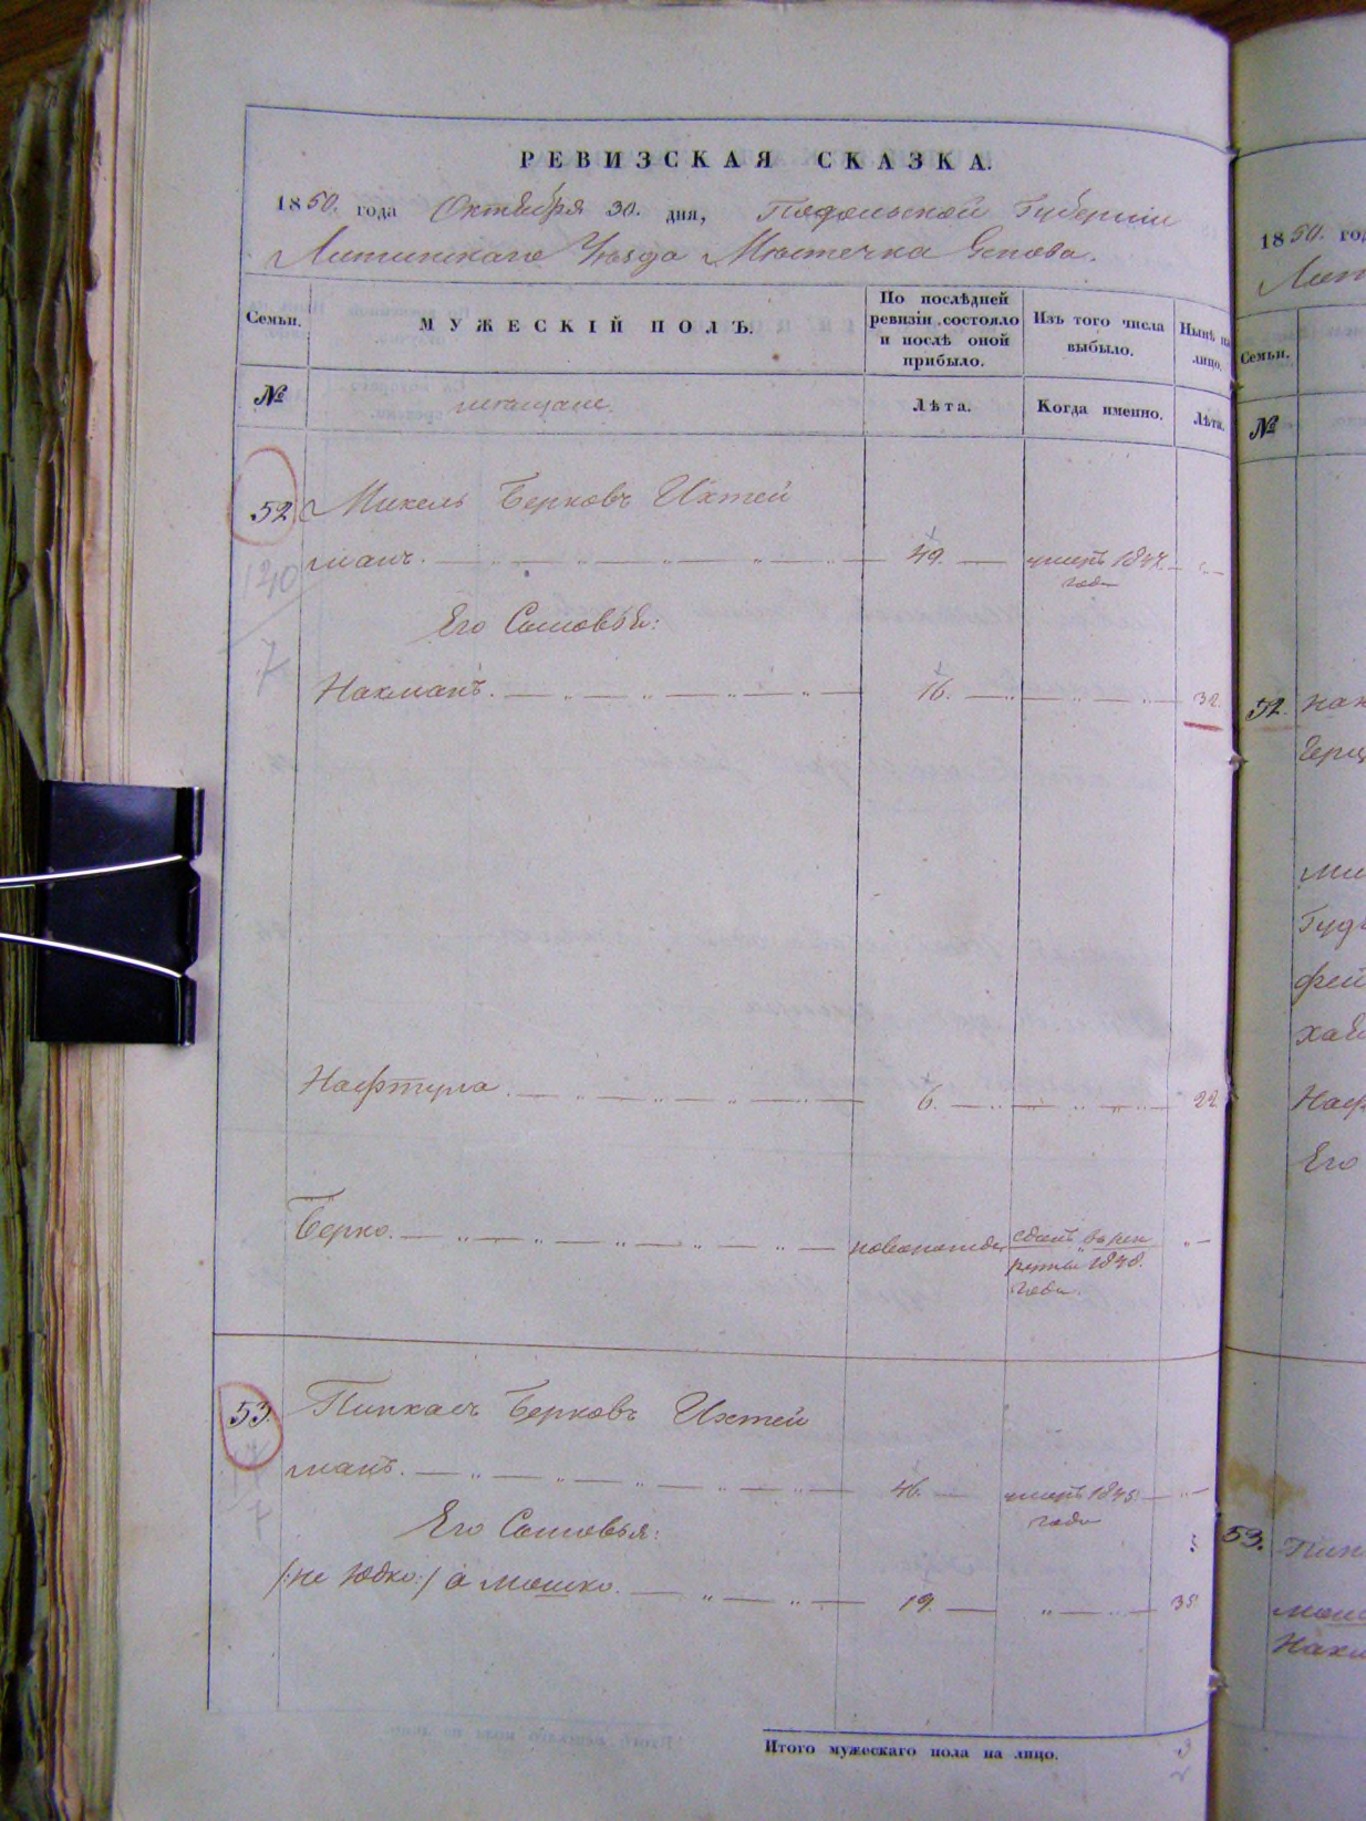 РЕВИЗСКАЯ СКАЗКА.
1850. года Октября 30. дня, Подольской Губерніи
Литинскаго Уѣзда Мѣстечка Янова.
Семьи.
МУЖЕСКІЙ ПОЛЪ.
По послѣдней
ревизіи состояло
и послѣ оной
прибыло.
Изъ того числа
выбыло.
Нынѣ на
лицо.
№
мещане.
Лѣта.
Когда именно.
Лѣта.
52 Михель Берковъ Ихтей
манъ. 49. умеръ 1847
года
Его Сыновья:
Нахманъ. 16. 32.
Нафтула 6. 22
Берко. сданъ въ рек
руты 1848.
года.
53. Пинхасъ Берковъ Ихтей
манъ. 46. умеръ 1845
года
Его Сыновья:
/:не Юдко:/ а Мошко. 19. 35.
Итого мужескаго пола на лицо. 3
1850. го
Семьи.
№
52.
53.